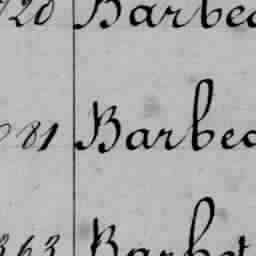 720 Barbeo
81 Barbeo
363 Barbet